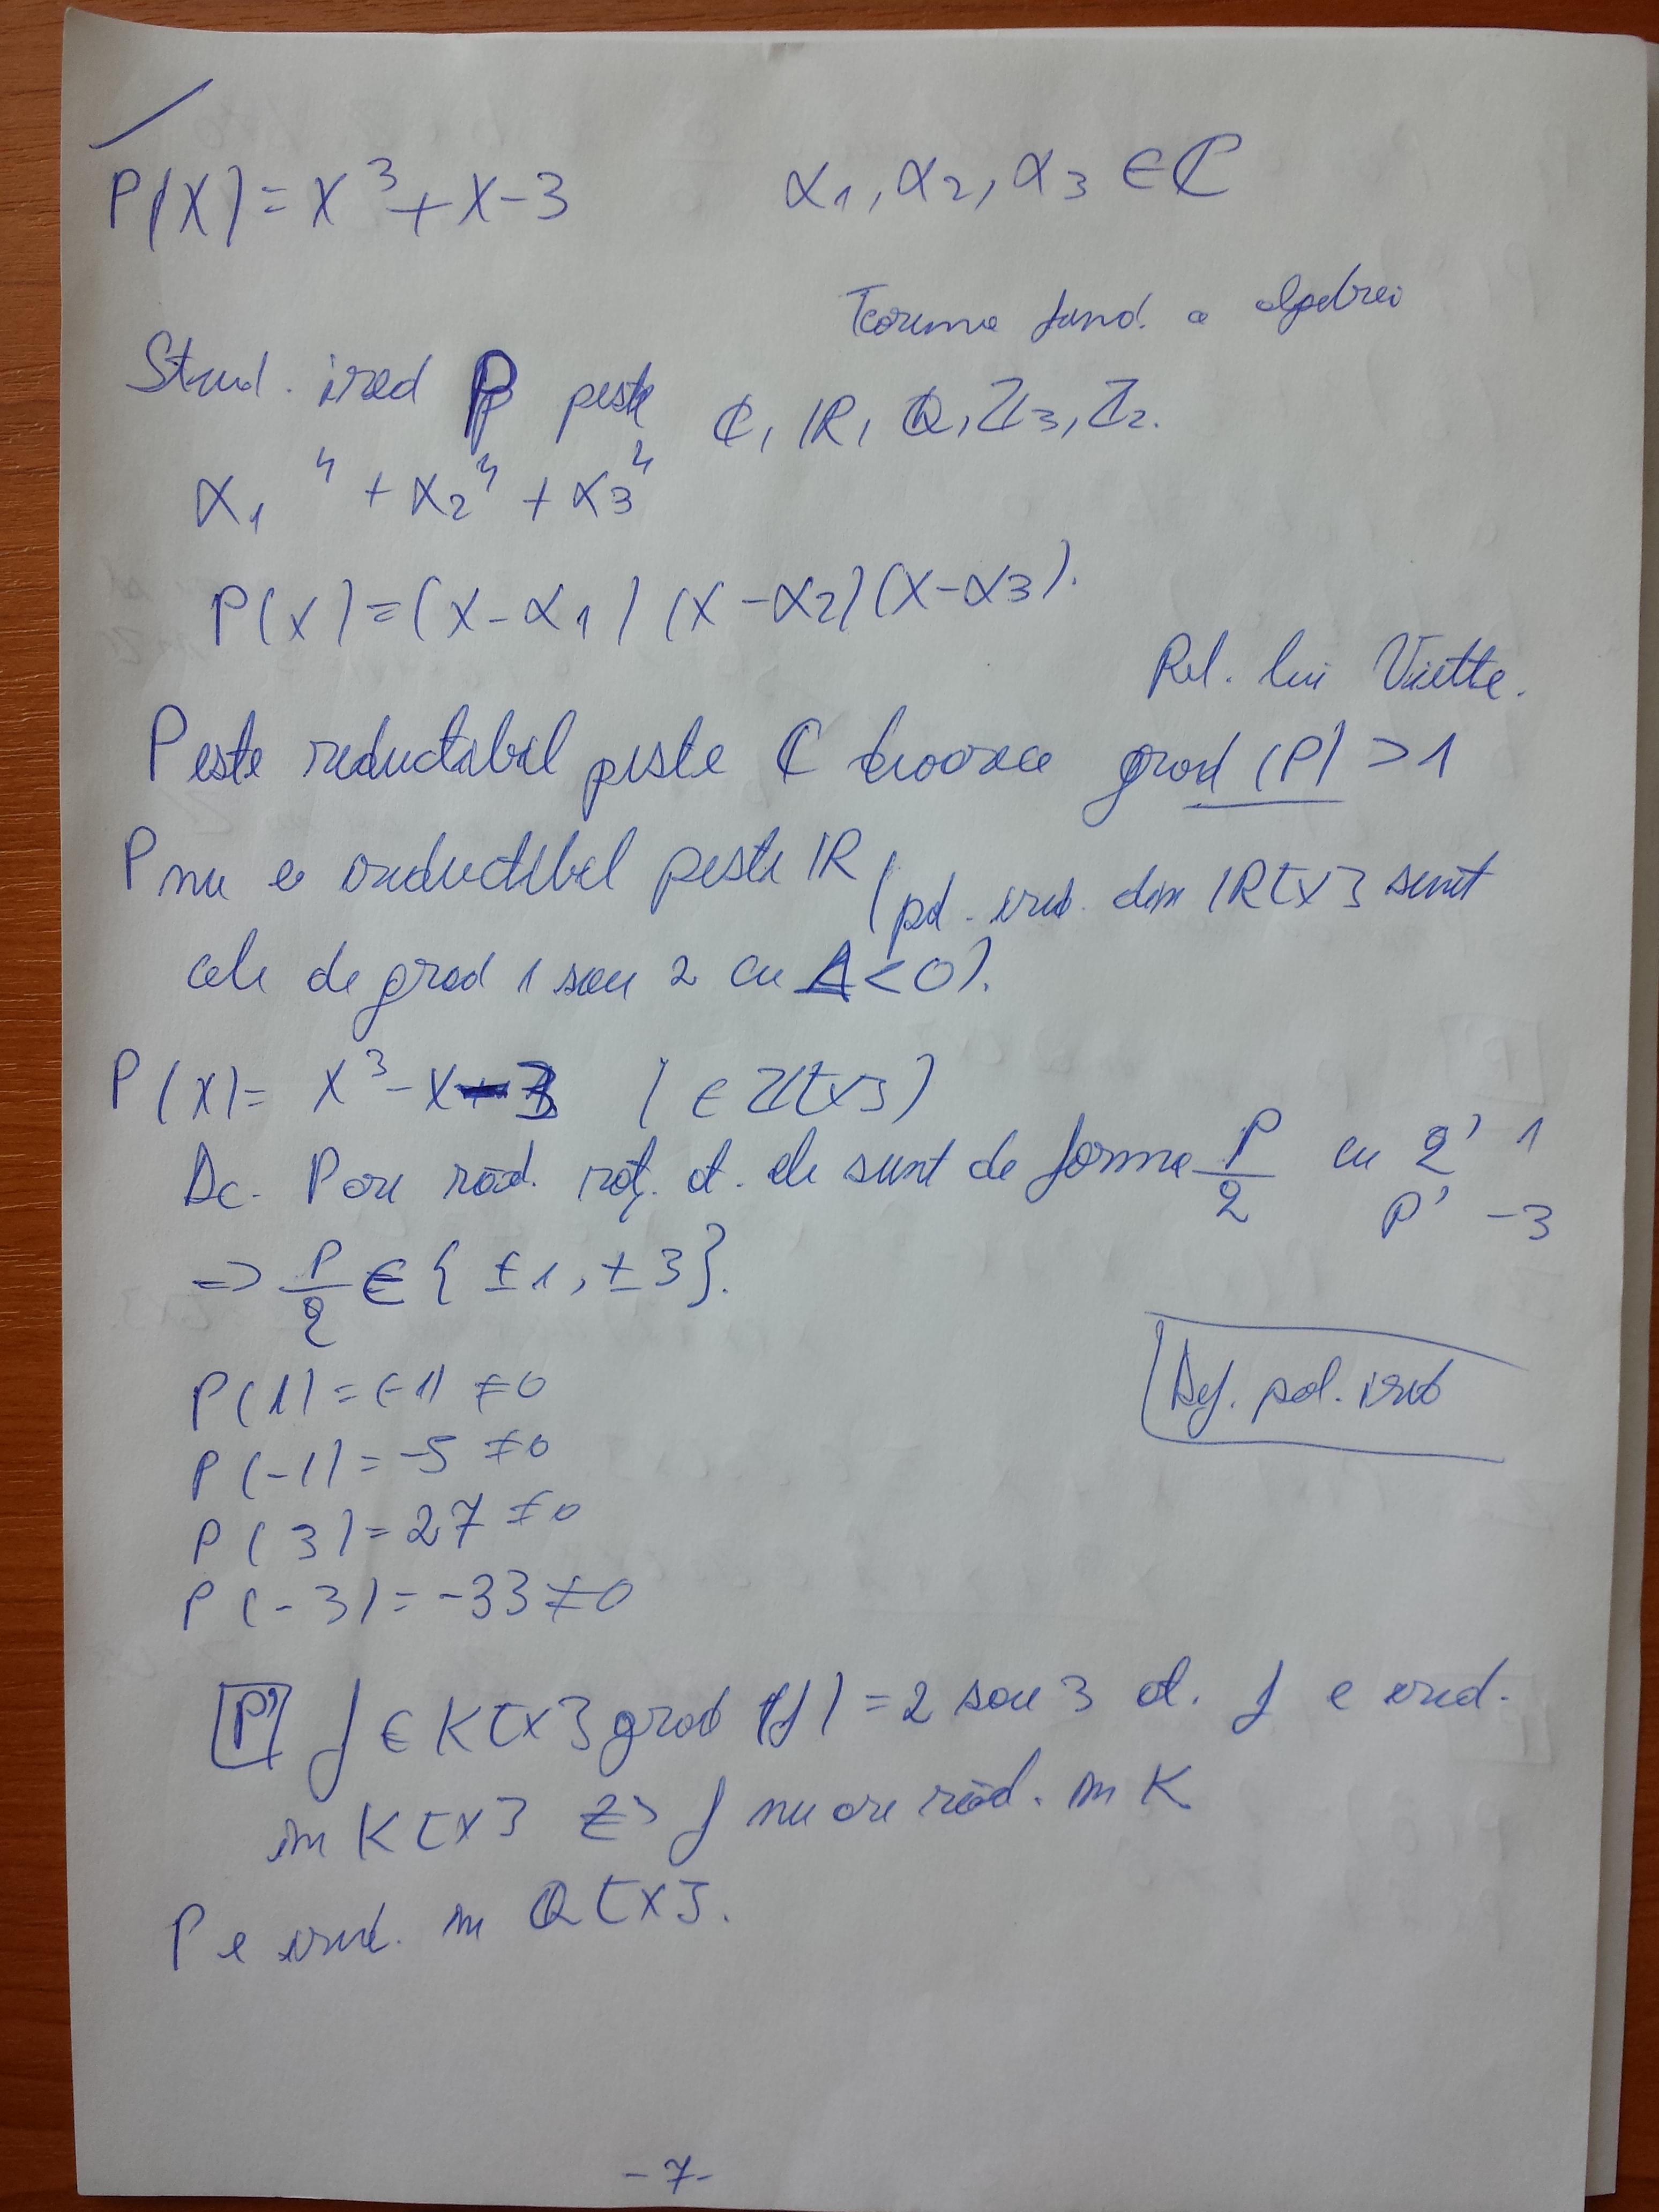 P(X) = X³ + X - 3   α₁, α₂, α₃ ∈ ℂ
Teorema fund. a algebrei
Stud. ired P peste ℂ, ℝ, ℚ, ℤ₃, ℤ₂.
α₁⁴ + α₂⁴ + α₃⁴
P(X) = (X - α₁)(X - α₂)(X - α₃).
Rel. lui Viette.
P este reductibil peste ℂ deoarece grad (P) > 1
P nu e ireductibil peste ℝ (pol. ired. din ℝ[X] sunt
cele de grad 1 sau 2 cu Δ < 0).
P(X) = X³ - X - 3 (∈ ℤ[X])
Dc. P are răd. raț. at. ele sunt de forma p/q cu q | 1
p | -3
⇒ p/q ∈ { ±1, ±3 }.
P(1) = (-1) ≠ 0
Def. pol. ired
P(-1) = -5 ≠ 0
P(3) = 27 ≠ 0
P(-3) = -33 ≠ 0
P f ∈ K[X] grad (f) = 2 sau 3 at. f e ired.
în K[X] ⇔ f nu are răd. în K
P e ired. în ℚ[X].
- 7 -